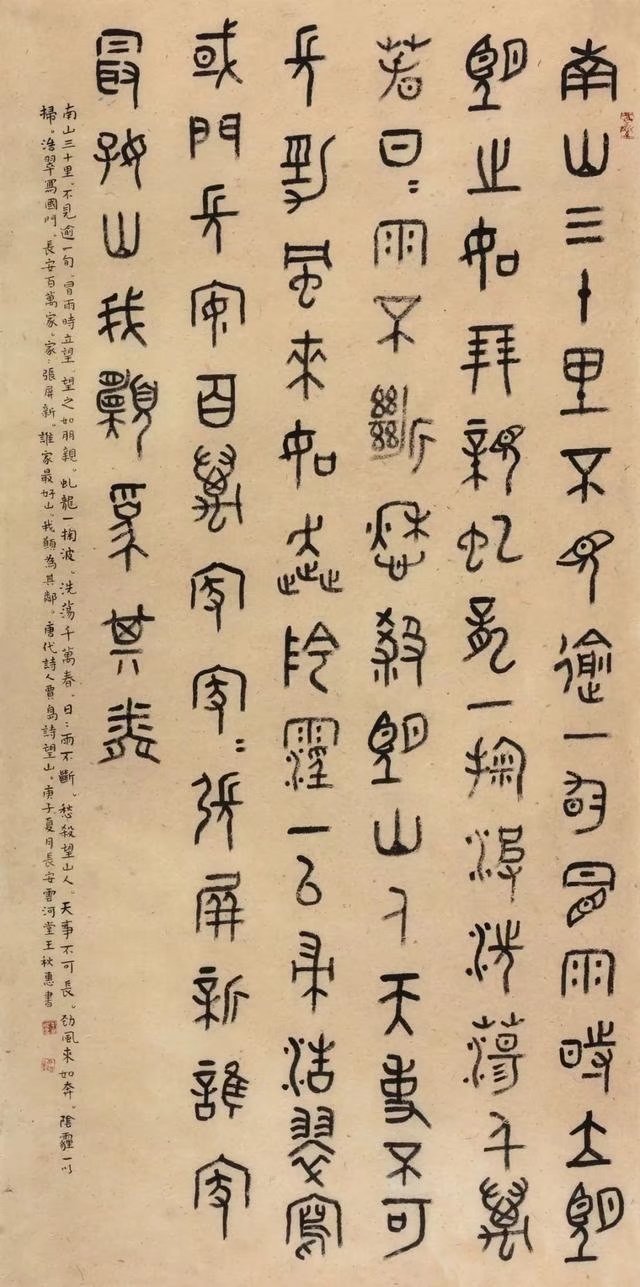 南山三十里不見逾一旬冒雨時立望
望之如朋親虬龍一掬波洗蕩千萬
春日:雨不斷愁殺望山人天事不可
長勁風來如奔陰霾一以掃浩翠寫
國門長安百萬家家:張屏新誰家
最好山我願為其鄰
南山三十里、不見逾一旬、冒雨時立望、望之如朋親。虬龍一掬波、洗蕩千萬春。日:雨不斷、愁殺望山人。天事不可長。勁風來如奔。陰霾一以
掃。浩翠寫國門、長安百萬家、家:張屏新。誰家最好山、我願為其鄰。唐代詩人賈島詩望山。庚子夏月長安雲河堂王秋惠書